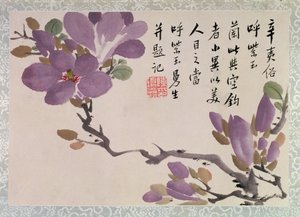 辛夷俗
呼紫玉
蘭此與空鈎
者小異以美
人目之當
呼紫玉
生
并題記